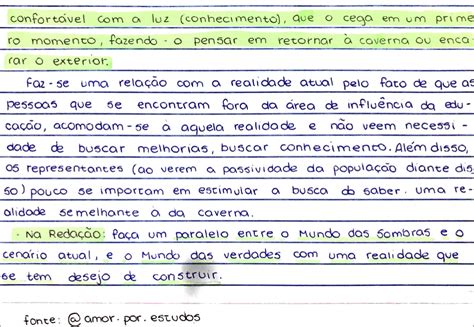 confortável com a luz (conhecimento), que o cega em um prime
ro momento, fazendo-o pensar em retornar à caverna ou enca
rar o exterior.
Faz-se uma relação com a realidade atual pelo fato de que as
pessoas que se encontram fora da área de influência da edu-
cação, acomodam-se à aquela realidade e não veem necessi-
dade de buscar melhorias, buscar conhecimento. Além disso,
os representantes (ao verem a passividade da população diante dis
so) pouco se importam em estimular a busca do saber. uma re-
alidade semelhante à da caverna.
· Na Redação: faça um paralelo entre o Mundo das Sombras e o
cenário atual, e o Mundo das verdades com uma realidade que
se tem desejo de construir.
fonte: @amor.por.estudos